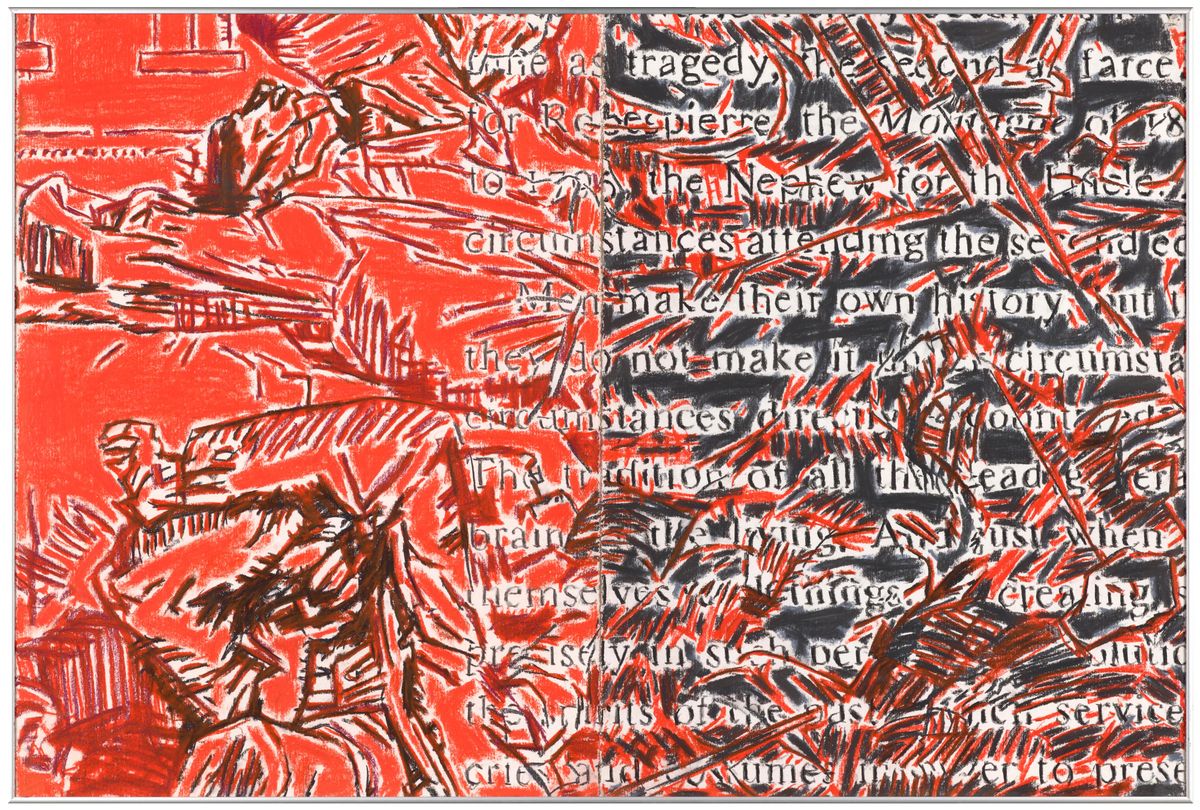 time as tragedy, the second as farce
for Robespierre, the Montagne of 18
to 1795, the Nephew for the Uncle
circumstances attending the second ed
Men make their own history, but
they do not make it under circumsta
circumstances directly found
The tradition of all the dead gener
brain the living. And just when
themselves and things, creating s
precisely in such per olutio
the spirits of the past service
cries and costumes in order to prese